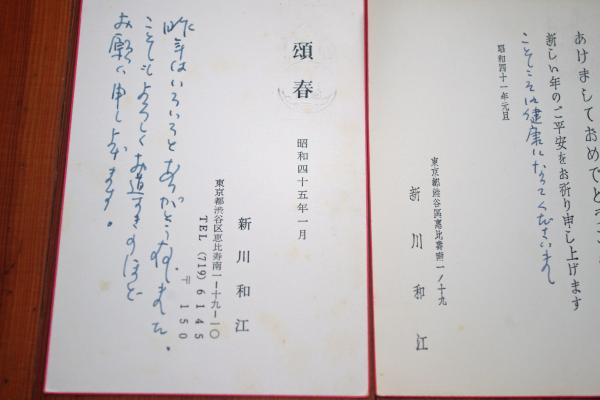 あけましておめでとうご
新しい年のご平安をお祈り申し上げます
ことしこそは健康になってくださいませ
昭和四十一年元旦
東京都渋谷区恵比寿南一ノ十九
新川和江
頌春
昭和四十五年一月
新川和江
東京都渋谷区恵比寿南一-十九-一〇
TEL (719) 6145
〒150
昨年はいろいろとありがとう存じました。
ことしもよろしくお導きのほど
お願い申し上げます。